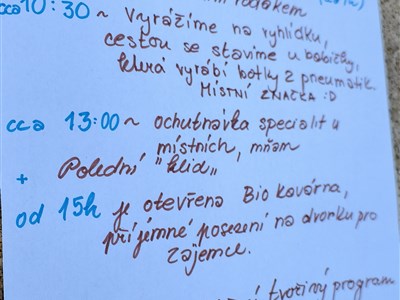 rodákem
cca 10:30 ~ Vyrážíme na vyhlídku,
cestou se stavíme u babičky,
která vyrábí botky z pneumatik.
MÍSTNÍ ZNAČKA :D
cca 13:00 ~ ochutnávka specialit u
místních, mňam
+ Polední "klid"
od 15h je otevřena Bio kavárna,
příjemné posezení na dvorku pro
zájemce.
tvořivý program